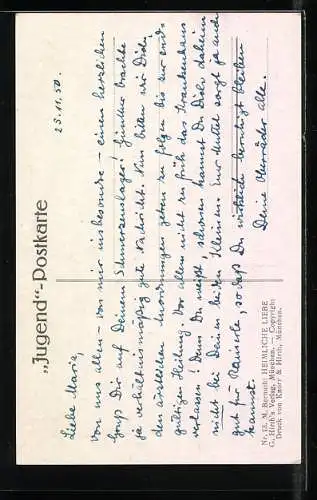 „Jugend“-Postkarte
25.11.50.
Liebe Maria,
von uns allen – von mir insbesondere – einen herzlichen
Gruß Dir auf Deinem Schmerzenslager! Günther brachte
ja verhältnismäßig gute Nachricht. Nun bitten wir Dich,
den ärztlichen Anordnungen genau zu folgen bis zur end-
gültigen Heilung. Vor allem nicht zu früh das Krankenhaus
verlassen! Denn Du weißt, schonen kannst Du Dich daheim
nicht bei Deinen beiden Kleinen. Eure Mutter sorgt ja auch
gut für Rainerle, so daß Du wirklich beruhigt bleiben
kannst.
Deine Oberräder alle.
Nr. 13. M. Bernuth: HEIMLICHE LIEBE
G. Hirth's Verlag, München. — Copyright
Druck von Knorr & Hirth, München.